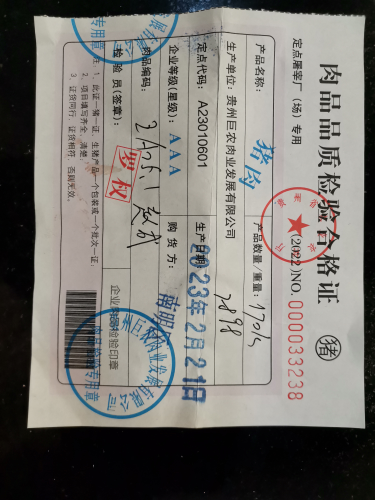 肉品品质检验合格证
猪
定点屠宰厂（场）专用
(2022)NO. 0000033238
产品名称： 猪肉
产品数量/重量：
生产单位：贵州巨农肉业发展有限公司
2898
定点代码： A23010601
生产日期： 2023年2月21日
企业等级(星级)： AAA
购 货 方： 南明
肉品编码：
检 验 员(签章)：
罗权
企业 检验印章
注：1、此证一猪一证，生猪产品一个包装或一个批次一证.
2、项目填写齐全、清楚.
3、证货同行，证货相符，否则无效。
检验专用章
专用章